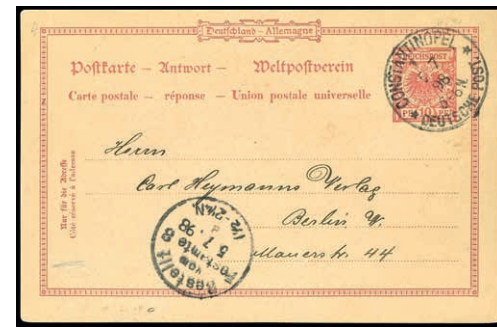 Deutschland - Allemagne
Postkarte — Antwort — Weltpostverein
Carte postale — réponse — Union postale universelle
REICHSPOST
PF 10 PF
CONSTANTINOPEL
98
DEUTSCHE POST
Nur für die Adresse
Côté réservé à l'adresse
Herrn
Carl Heymanns Verlag
Berlin W.
Mauerstr. 44
Bestellt
vom
Postamte 8
5 7. 98